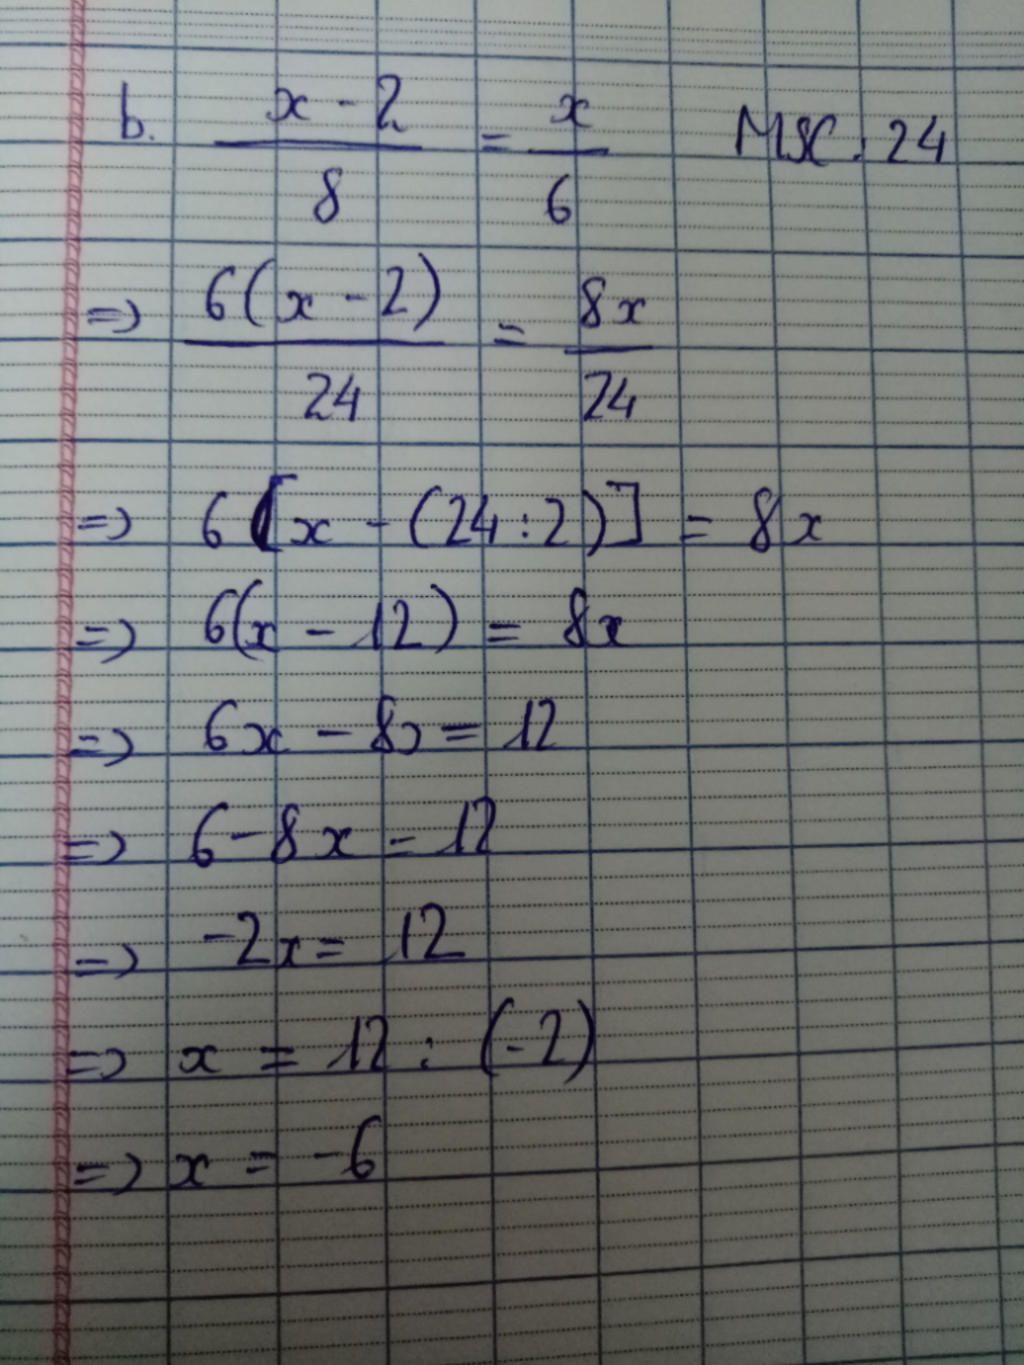 b. (x - 2)/8 = x/6 MSC : 24
=> 6(x - 2)/24 = 8x/24
=> 6[x - (24 : 2)] = 8x
=> 6(x - 12) = 8x
=> 6x - 8x = 12
=> 6 - 8x = 12
=> -2x = 12
=> x = 12 : (-2)
=> x = -6